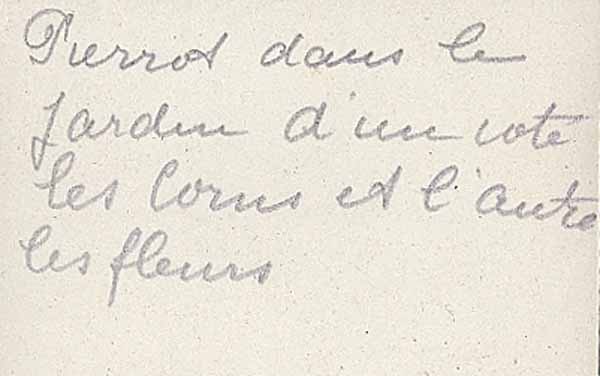 Pierrot dans le
jardin d'un coté
les Corns et l'autre
les fleurs